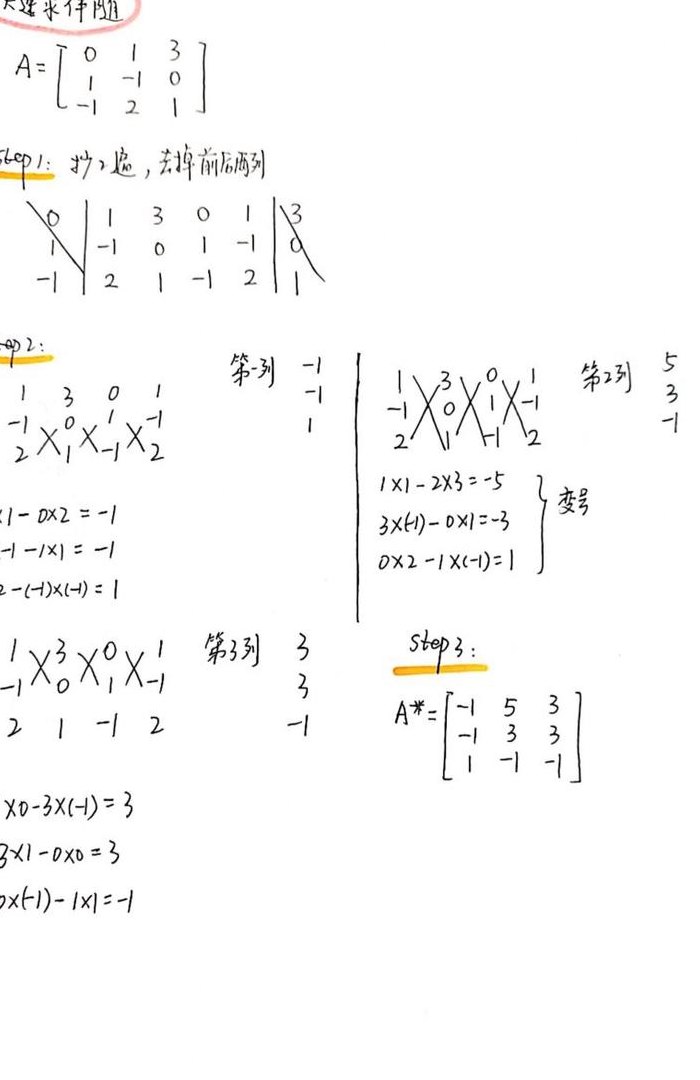 速求伴随
A = [ 0 1 3
1 -1 0
-1 2 1 ]
Step1: 抄2遍,去掉前后两列
0 | 1 3 0 1 | 3
1 | -1 0 1 -1 | 0
-1 | 2 1 -1 2 | 1
ep2:
1 3 0 1
-1 0 1 -1
2 1 -1 2
第一列 -1
-1
1
×1 - 0×2 = -1
-1 - 1×1 = -1
2 - (-1)×(-1) = 1
1 3 0 1
-1 0 1 -1
2 1 -1 2
第2列 5
3
-1
1×1 - 2×3 = -5
3×(-1) - 0×1 = -3
0×2 - 1×(-1) = 1
变号
1 3 0 1
-1 0 1 -1
2 1 -1 2
第3列 3
3
-1
×0 - 3×(-1) = 3
3×1 - 0×0 = 3
0×(-1) - 1×1 = -1
Step3:
A* = [ -1 5 3
-1 3 3
1 -1 -1 ]